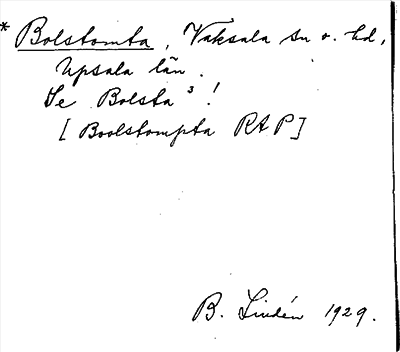 * Bolstomta, Vaksala sn o. hd,
Upsala län.
Se Bolsta ³!
[Boolstompta RAP]
B. Lindén 1929.